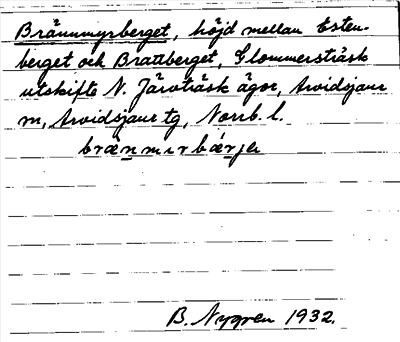 Brännmyrberget, höjd mellan Esten-
berget och Brattberget, Glommersträsk
utskifte N. Järvträsk ägor, Arvidsjaur
m, Arvidsjaur tg, Norrb. l.
brænmırbærje
B. Nygren 1932.